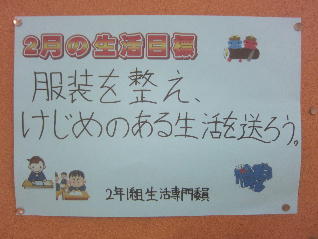 2月の生活目標
服装を整え、
けじめのある生活を送ろう。
2年1組生活専門委員